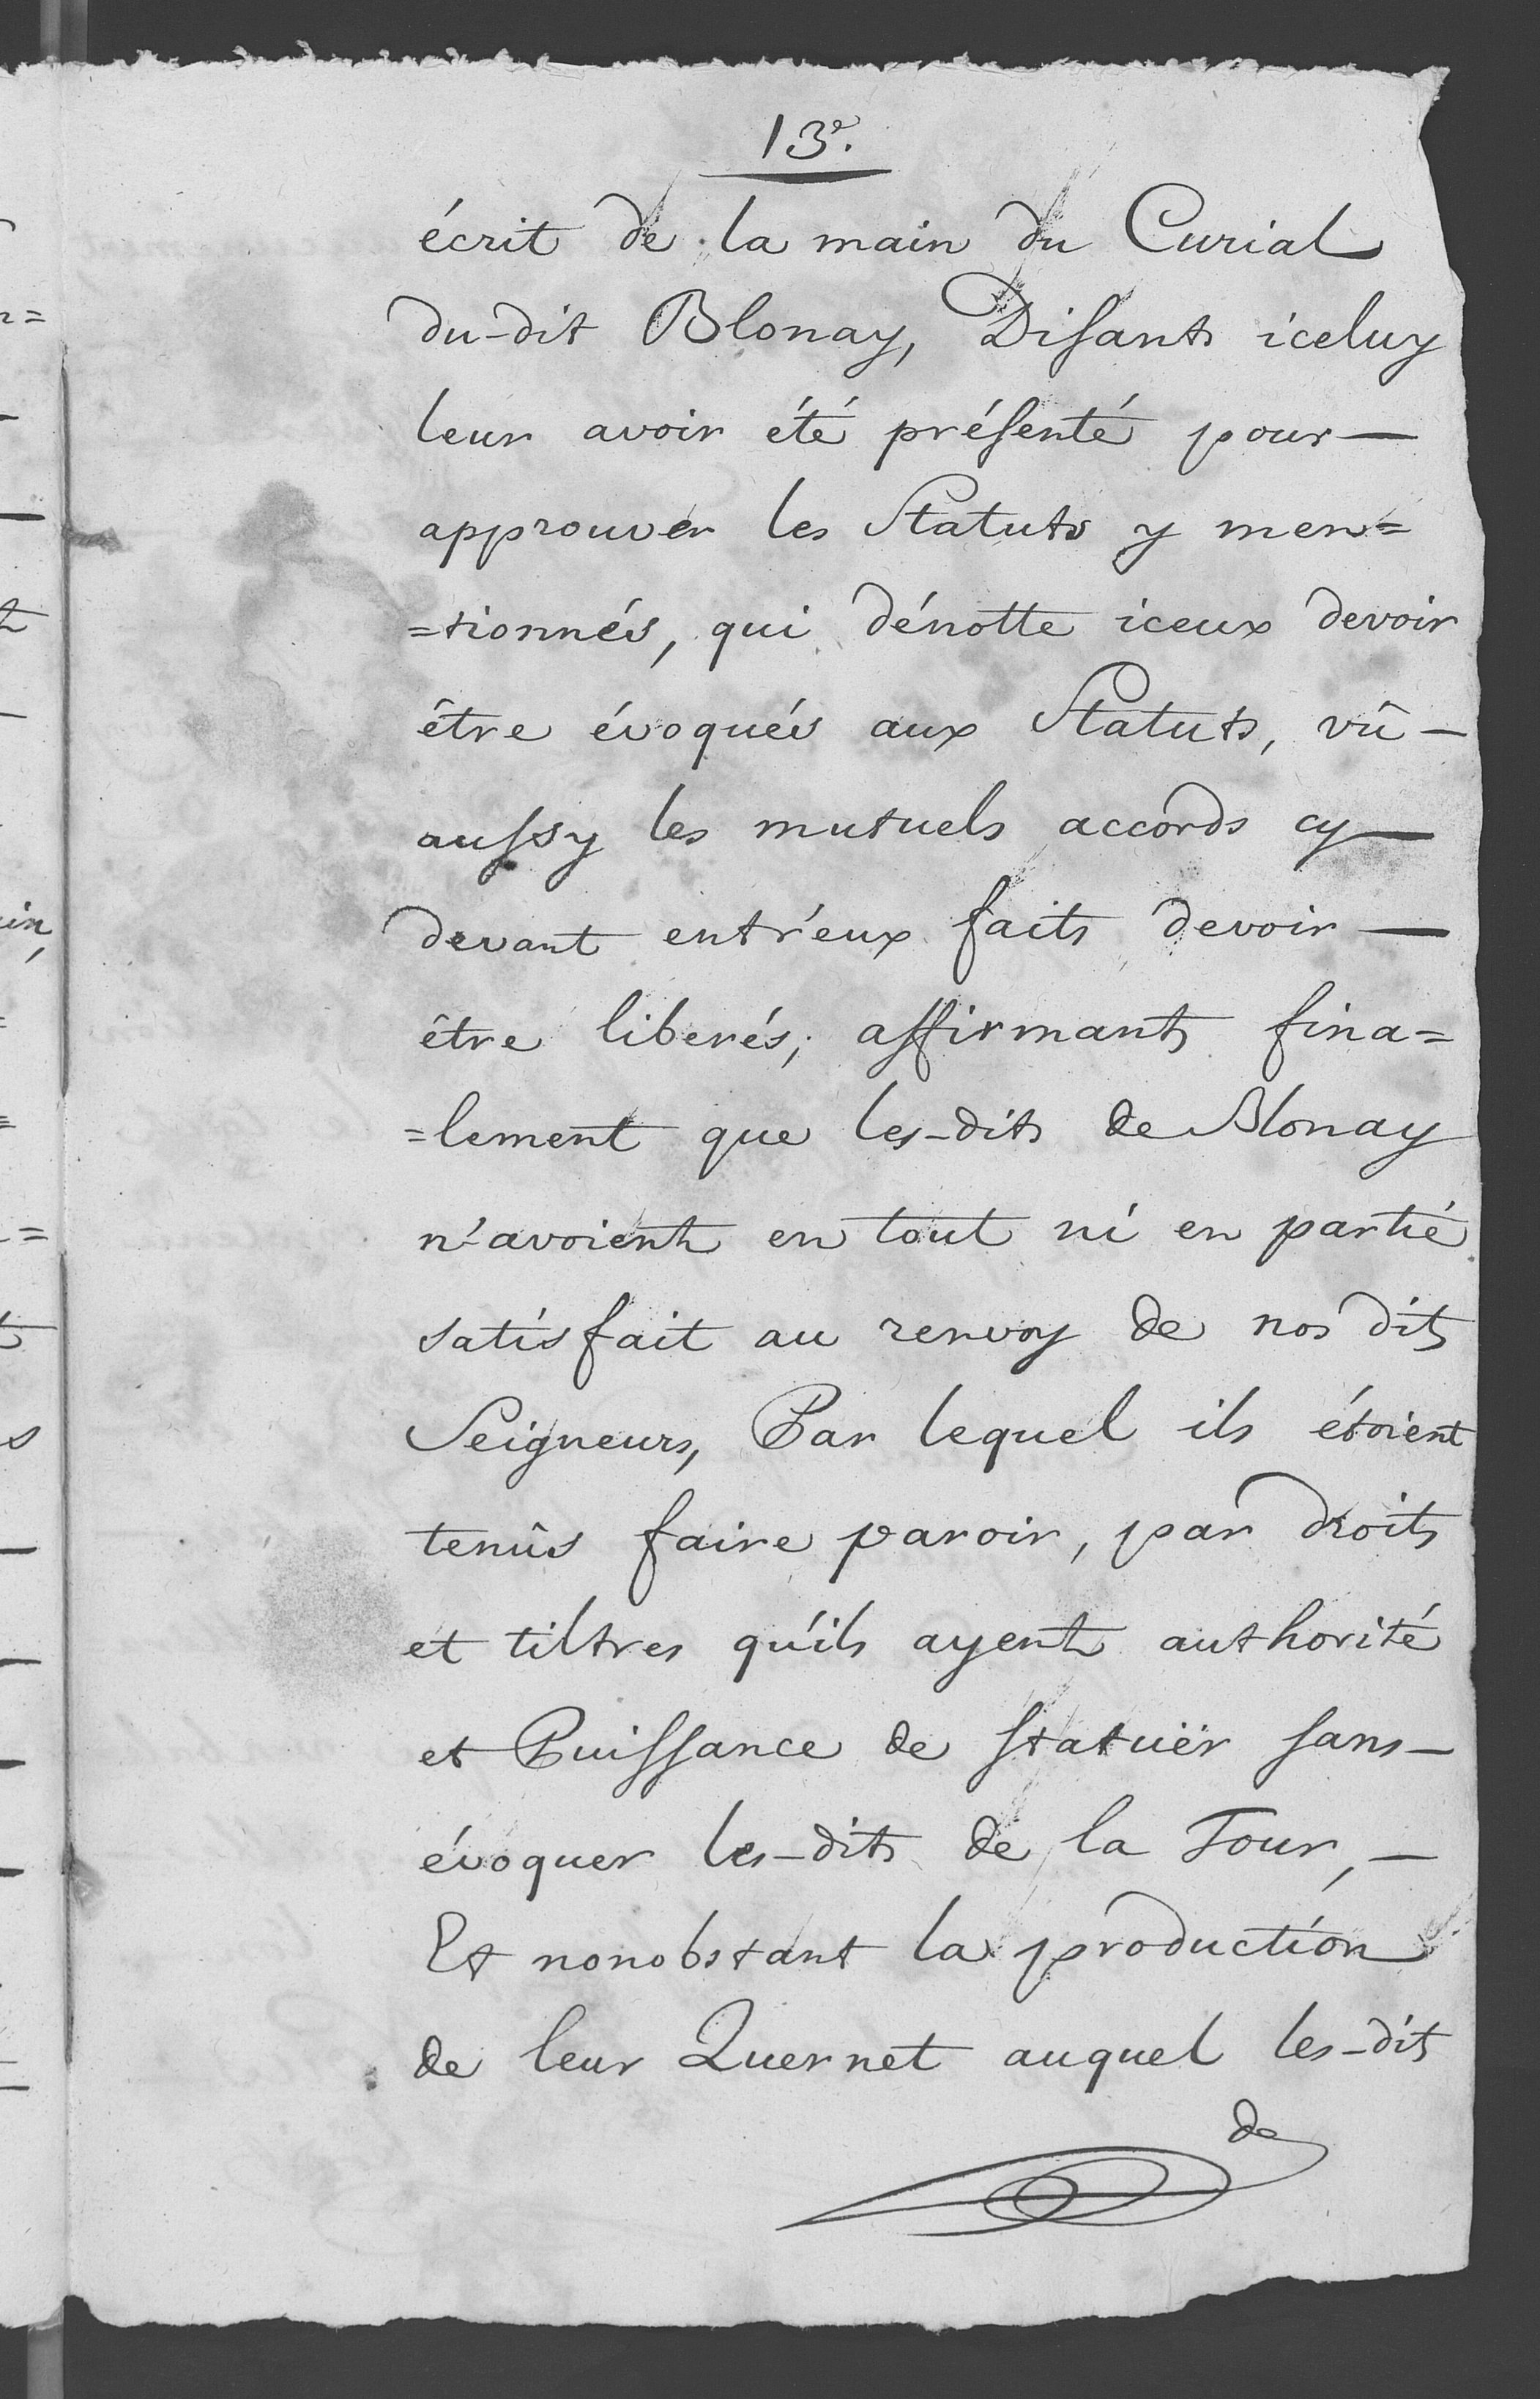 13e.
écrit de la main du Curial
du-dit Blonay, Disants iceluy
leur avoir été présenté pour —
approuver les Statuts y men=
=tionnés, qui dénotte iceux devoir
être évoqués aux Statuts, vû —
aussy les mutuels accords cy —
devant entr'eux faits devoir —
être liberés; affirmants fina=
=lement que les-dits de Blonay
n'avoients en tout ni en partie
satisfait au renvoy de nos dits
Seigneurs, Par lequel ils étoient
tenûs faire paroir, par droits
et tiltres qu'ils ayents authorité
et Puissance de statuër sans —
évoquer les-dits de la Tour, —
Et nonobstant la production
de leur Quernet auquel les-dits
de